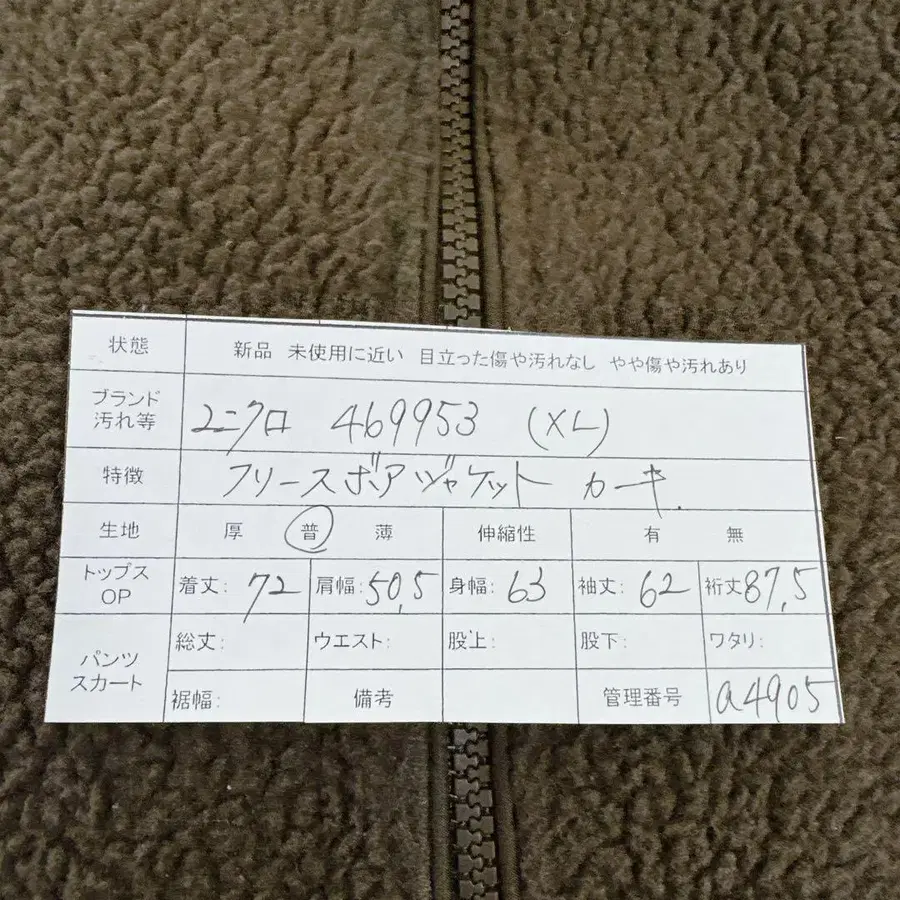 状態 新品 未使用に近い 目立った傷や汚れなし やや傷や汚れあり
ブランド
汚れ等 ユニクロ 469953 (XL)
特徴 フリースボアジャケット カーキ.
生地 厚 普 薄 伸縮性 有 無
トップス
OP 着丈: 72 肩幅: 50,5 身幅: 63 袖丈: 62 裄丈 87,5
パンツ
スカート 総丈: ウエスト: 股上: 股下: ワタリ:
裾幅: 備考 管理番号 a4905